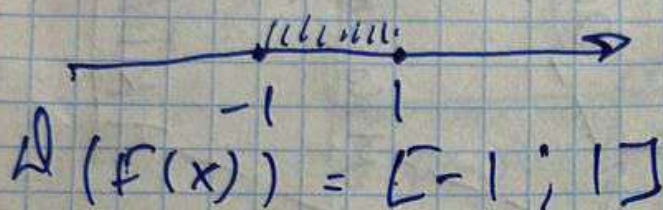 -1 1
D(F(x)) = [-1; 1]